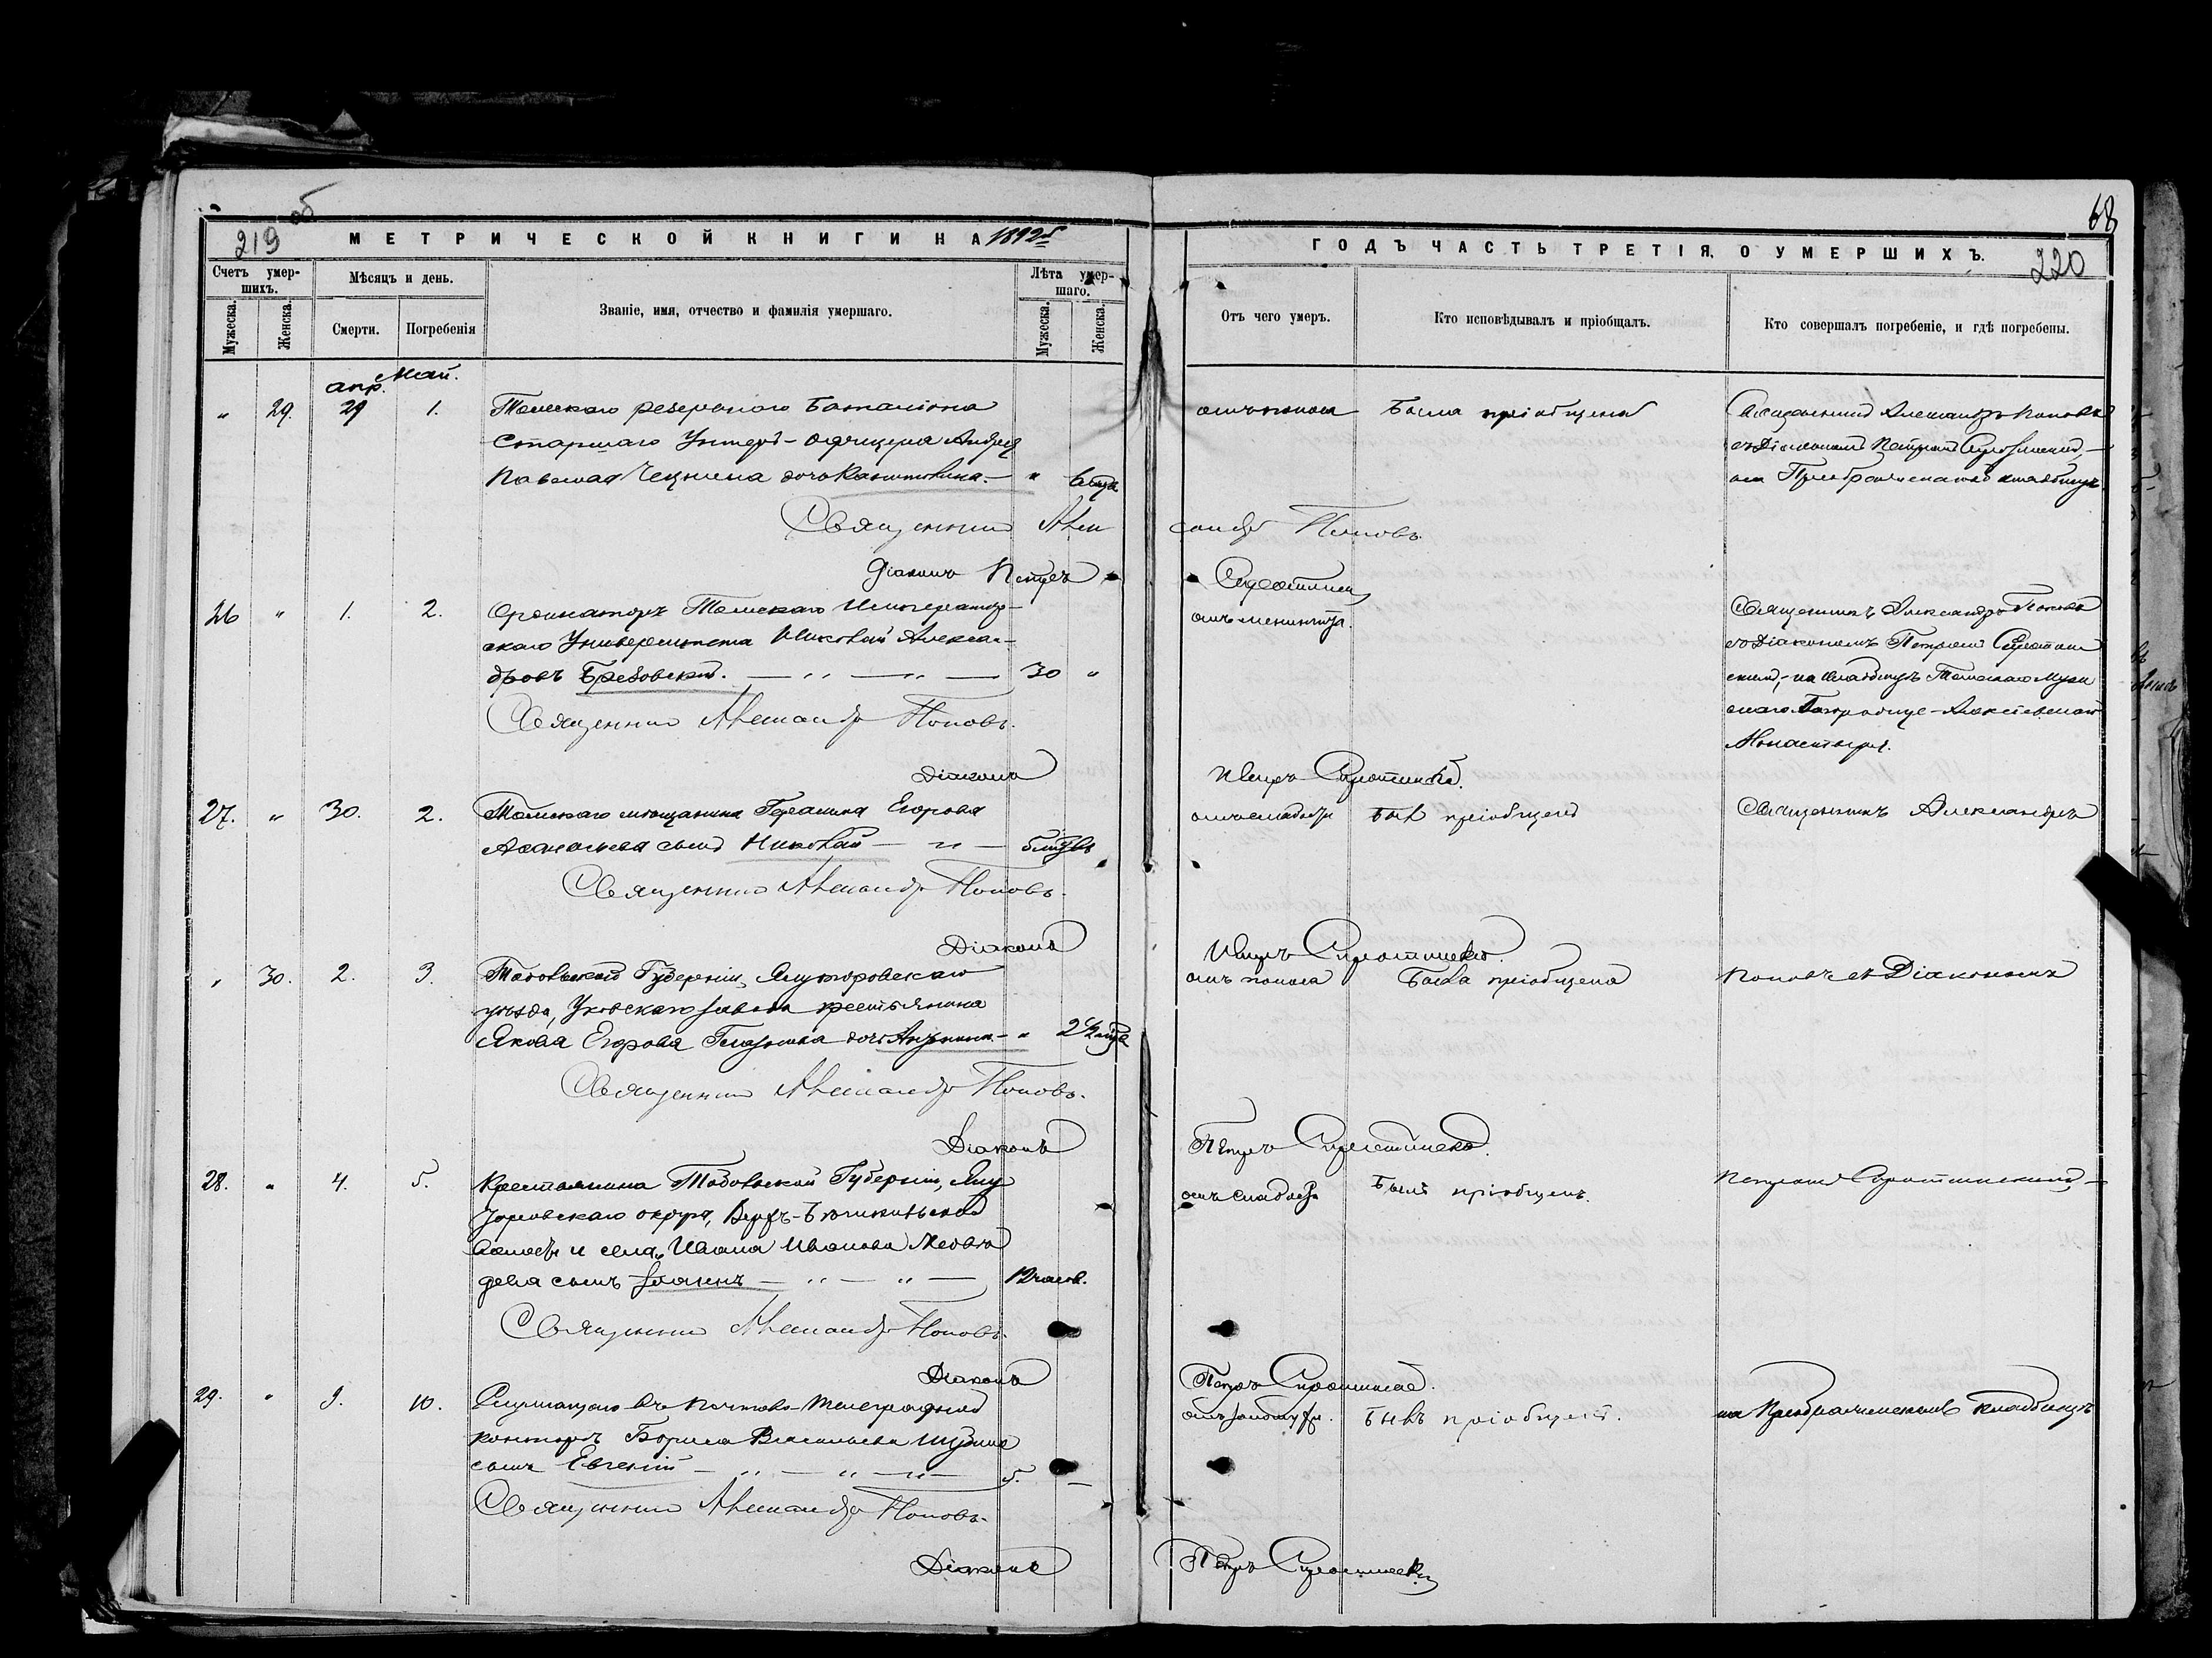 об
219
МЕТРИЧЕСКОЙ КНИГИ НА 1892й
Счетъ умер-
шихъ.
Мужеска.
Женска.
Мѣсяцъ и день.
Смерти.
Погребенія
Званіе, имя, отчество и фамилія умершаго.
Лѣта умер-
шаго.
Мужеска.
Женска.
68
ГОДЪ ЧАСТЬ ТРЕТІЯ, О УМЕРШИХЪ.
220
Отъ чего умеръ.
Кто исповѣдывалъ и пріобщалъ.
Кто совершалъ погребеніе, и гдѣ погребены.
апр. Май.
" 29. 29 1. Томскаго резервнаго баталіона
Старшаго Унтеръ-офицера Андрея
Павлова дочь " 6 мца
отъ поноса Была пріобщена
Священникъ Александръ Поповъ
съ Діакономъ Петромъ Сиротинскимъ,
на Преображенскомъ кладбищѣ
Священникъ Александръ Поповъ.
Діаконъ Петръ Сиротинскій
26 " 1. 2. Ординаторъ Томскаго Император-
скаго Университета Николай Алексан-
дровъ Брезовскій. — " — " — 30 "
отъ менингита.
Священникъ Александръ Поповъ
съ Діакономъ Петромъ Сиротин
скимъ, на кладбищѣ Томскаго Муж
скаго Богородице-Алексіевскаго
Монастыря.
Священникъ Александръ Поповъ.
Діаконъ Петръ Сиротинскій.
27. " 30. 2. Томскаго мѣщанина Герасима Егорова
сынъ Николай — " — 6 мцвъ
отъ слабости Былъ пріобщенъ
Священникъ Александръ
Священникъ Александръ Поповъ.
Діаконъ Петръ Сиротинскій.
" 30. 2. 3. Тобольской Губерніи, Ялуторовскаго
уѣзда, завода крестьянина
Якова Егорова дочь — " 2 1/2 мца
отъ поноса Была пріобщена
Поповъ съ Діакономъ
Священникъ Александръ Поповъ.
Діаконъ Петръ Сиротинскій.
28. " 4. 5. Крестьянина Тобольской Губерніи, Ялу
торовскаго округа,
волости и села, Ивана Иванова Медвѣ
дева сынъ Іоаннъ — " — " — 12 часов.
отъ слабости Былъ пріобщенъ.
Петромъ Сиротинскимъ, —
Священникъ Александръ Поповъ.
Діаконъ Петръ Сиротинскій.
29. " 9. 10. Служащаго въ Почтово-телеграфной
конторѣ Бориса Васильева
сынъ Евгеній — " — " — " — 5. —
отъ золотухи. Былъ пріобщенъ.
на Преображенскомъ кладбищѣ
Священникъ Александръ Поповъ.
Діаконъ Петръ Сиротинскій